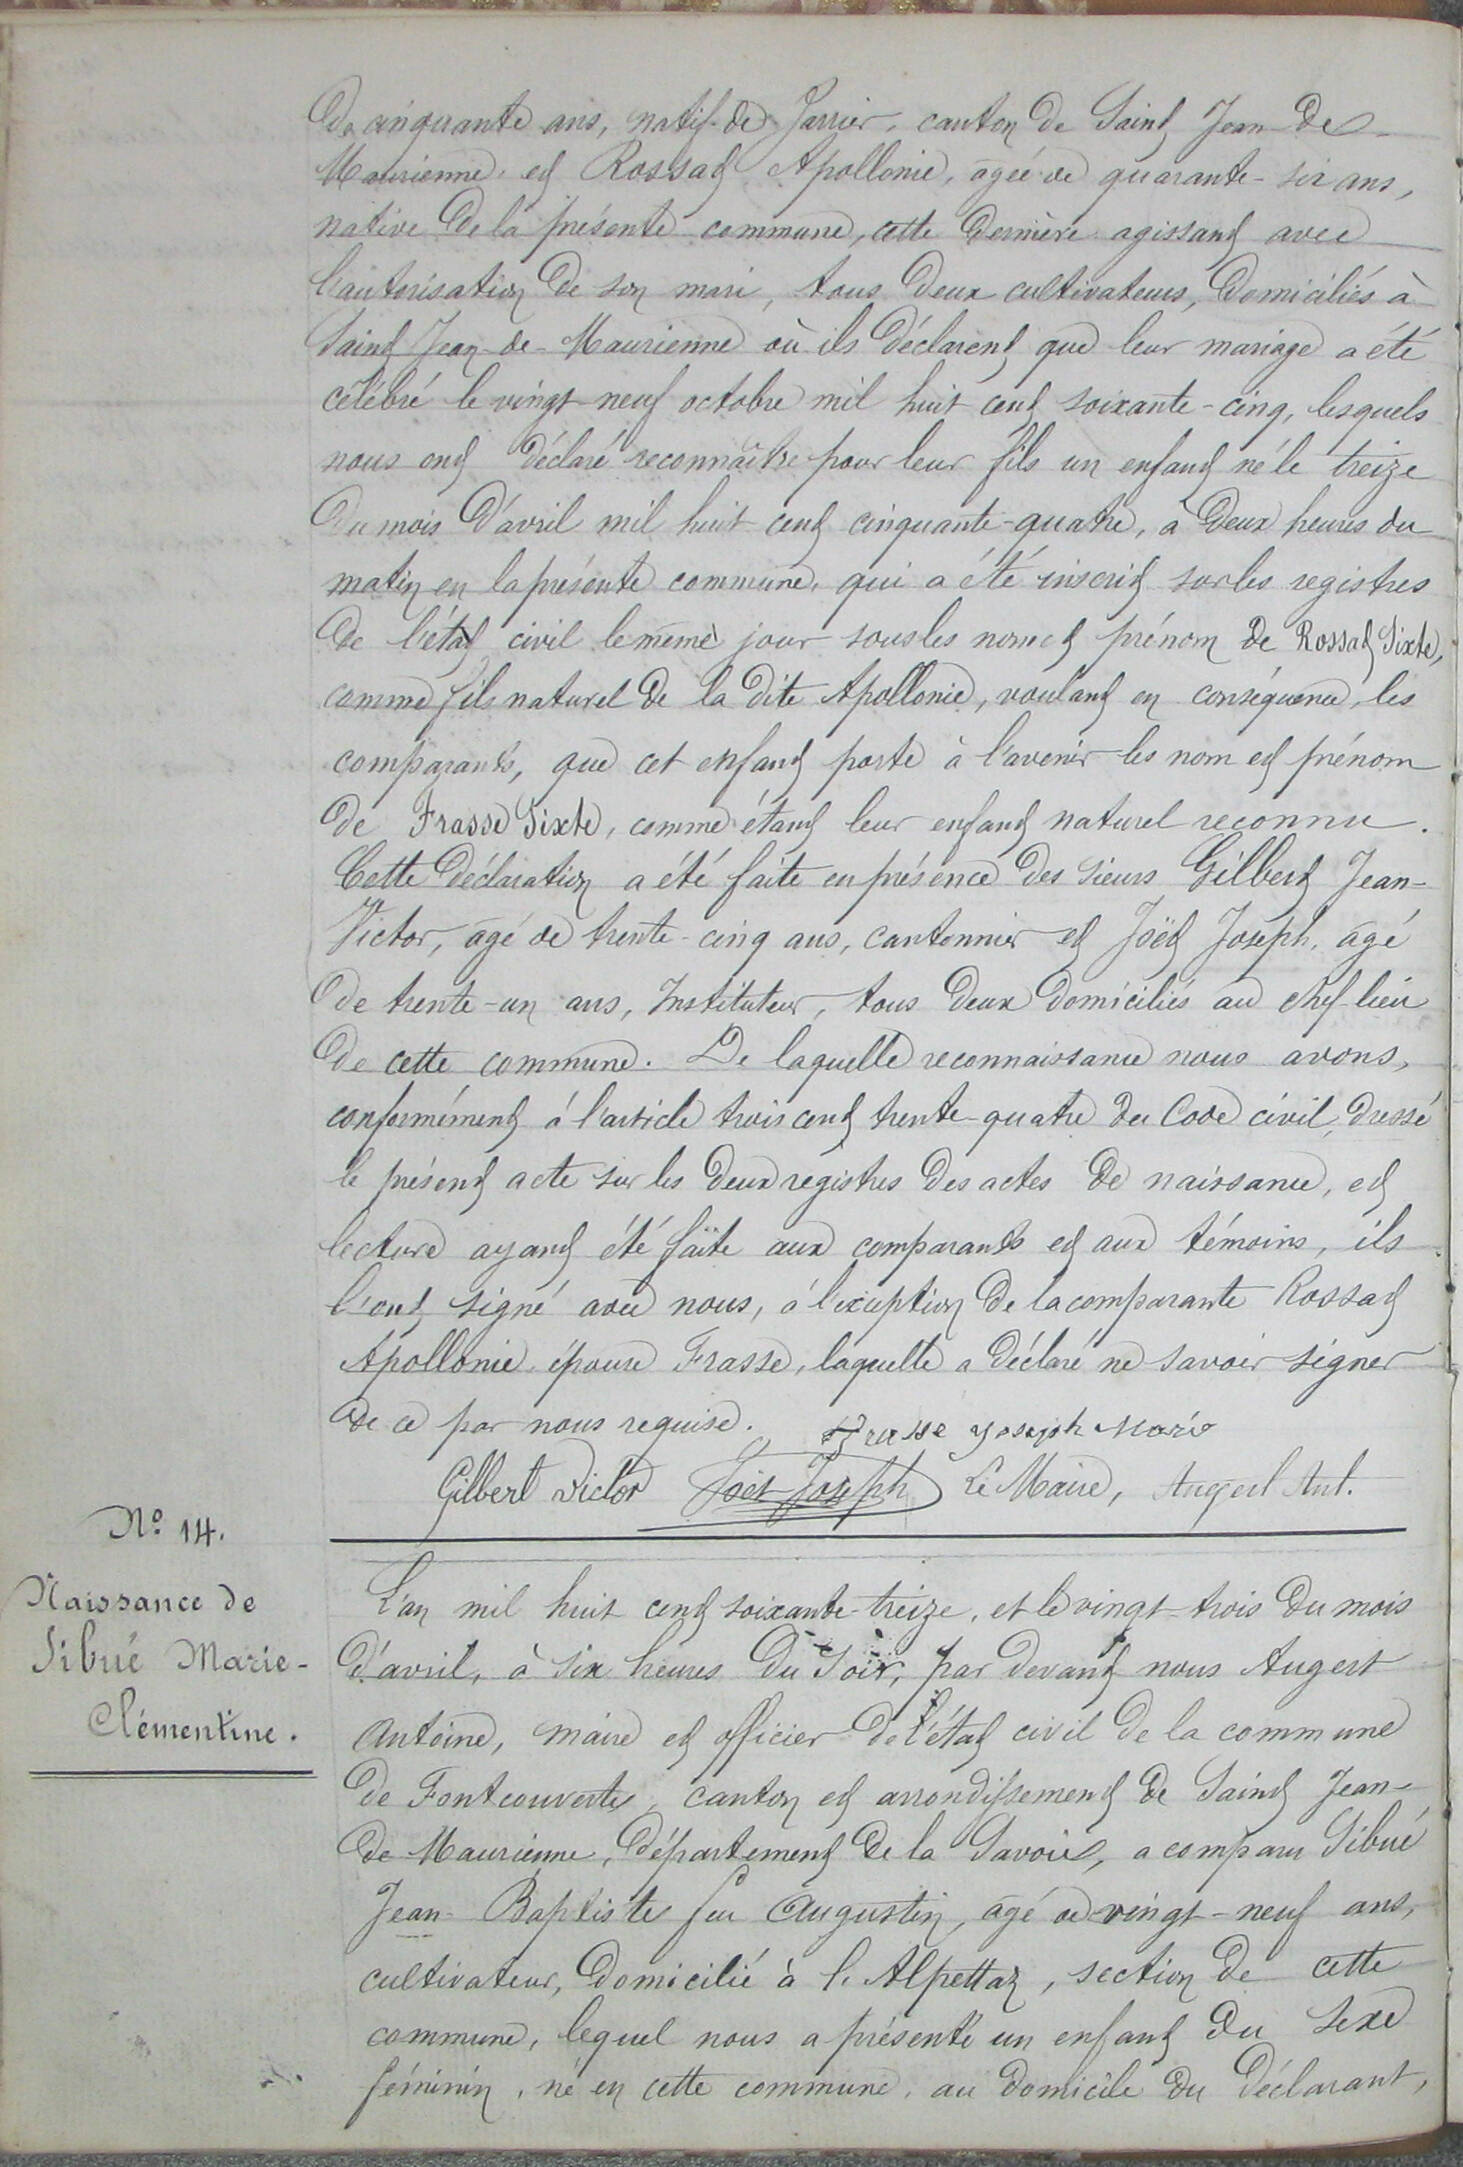 de cinquante ans, natif de Jarrier, canton de Saint Jean-de-
Maurienne, et Rossat Apollonie, agée de quarante-six ans,
native de la présente commune, cette dernière agissant avec
l'autorisation de son mari, tous deux cultivateurs, domiciliés à
Saint Jean-de-Maurienne où ils déclarent que leur mariage a été
célébré le vingt-neuf octobre mil huit cent soixante-cinq, lesquels
nous ont déclaré reconnaître pour leur fils un enfant né le treize
du mois d'avril mil huit cent cinquante-quatre, à deux heures du
matin en la présente commune, qui a été inscrit sur les registres
de l'état civil le même jour sous les nom et prénom de Rossat Sixte,
comme fils naturel de la dite Apollonie, voulant en conséquence, les
comparants, que cet enfant porte à l'avenir les nom et prénom
de Frasse Sixte, comme étant leur enfant naturel reconnu.
Cette déclaration a été faite en présence des sieurs Gilbert Jean-
Victor, agé de trente-cinq ans, cantonnier et Joët Joseph, agé
de trente-un ans, Instituteur, tous deux domiciliés au chef-lieu
de cette commune. De laquelle reconnaissance nous avons,
conformément à l'article trois cent trente-quatre du Code civil, dressé
le présent acte sur les deux registres des actes de naissance, et
lecture ayant été faite aux comparants et aux témoins, ils
l'ont signé avec nous, à l'exception de la comparante Rossat
Apollonie épouse Frasse, laquelle a déclaré ne savoir signer
de ce par nous requise. Frasse joseph Marie
Gilbert Victor Joët Joseph Le Maire, Augert Ant.
N° 14.
Naissance de
Sibué Marie-
Clémentine.
L'an mil huit cent soixante-treize, et le vingt-trois du mois
d'avril, à six heures du soir, par devant nous Augert
Antoine, maire et officier de l'état civil de la commune
de Fontcouverte, canton et arrondissement de Saint Jean-
de-Maurienne, département de la Savoie, a comparu Sibué
Jean-Baptiste feu Augustin, agé de vingt-neuf ans,
cultivateur, domicilié à l'Alpettaz, section de cette
commune, lequel nous a présenté un enfant du sexe
féminin, né en cette commune, au domicile du déclarant,